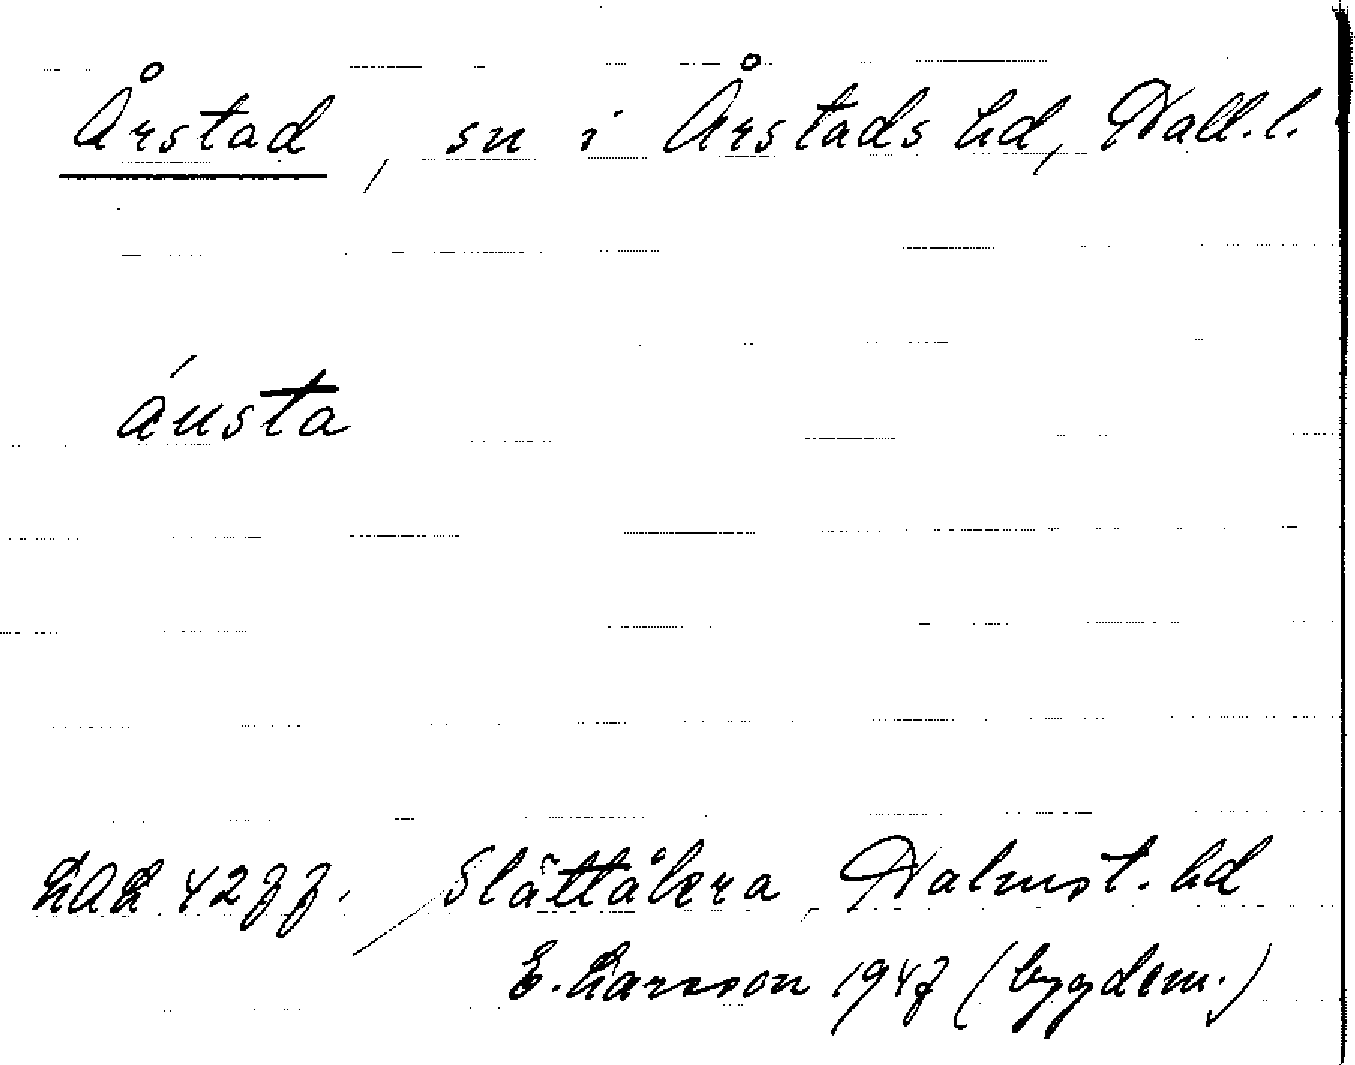 Årstad, sn i Årstads hd, Hall. l.
áusta
LAL 4277. Slättåkra, Halmst. hd
E. Larsson 1947 (bygdem.)